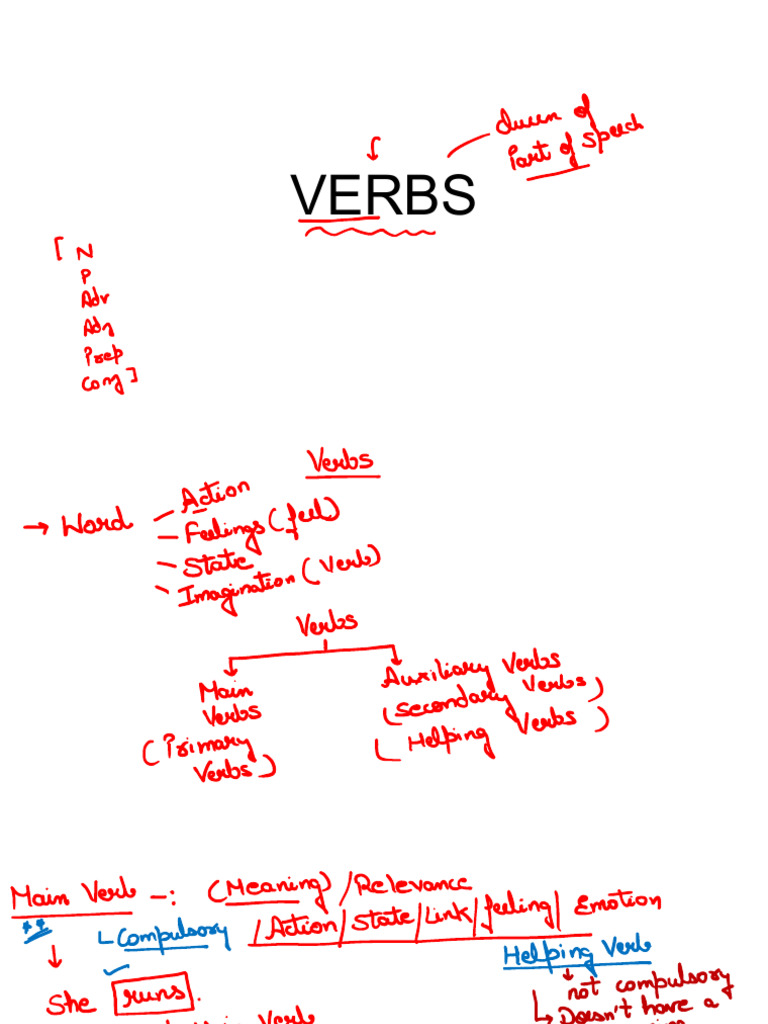 Queen of
Part of Speech
VERBS
[ N
P
Adv
Adj
Prep
Conj ]
Verbs
→ Word - Action
- Feelings (feel)
- State
- Imagination (Verb)
Verbs
Main
Verbs
(Primary
Verbs)
Auxiliary Verbs
(Secondary Verbs)
(Helping Verbs)
Main Verb -: (Meaning) / Relevance
Compulsory / Action / State / Link / feeling / Emotion
Helping Verb
not compulsory
Doesn't have a
She runs.
Main Verb